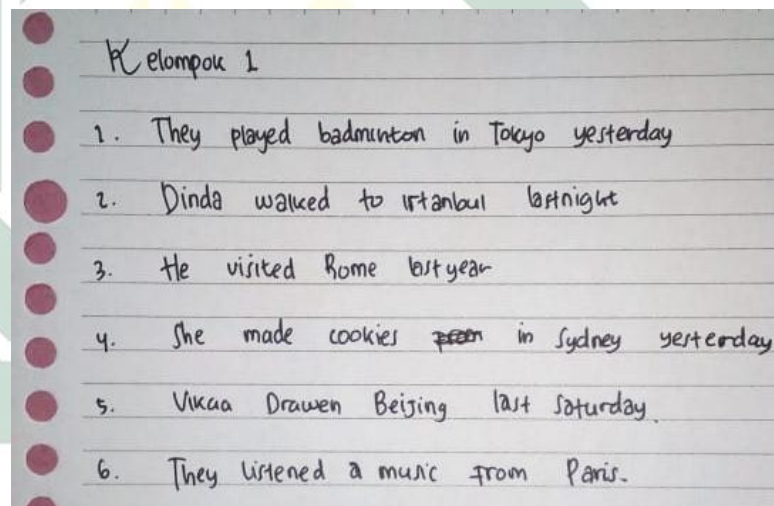 Kelompok 1
1. They played badminton in Tokyo yesterday
2. Dinda walked to istanbul lastnight
3. He visited Rome last year
4. She made cookies in Sydney yesterday
5. Vikaa Drawen Beijing last Saturday.
6. They listened a music from Paris.